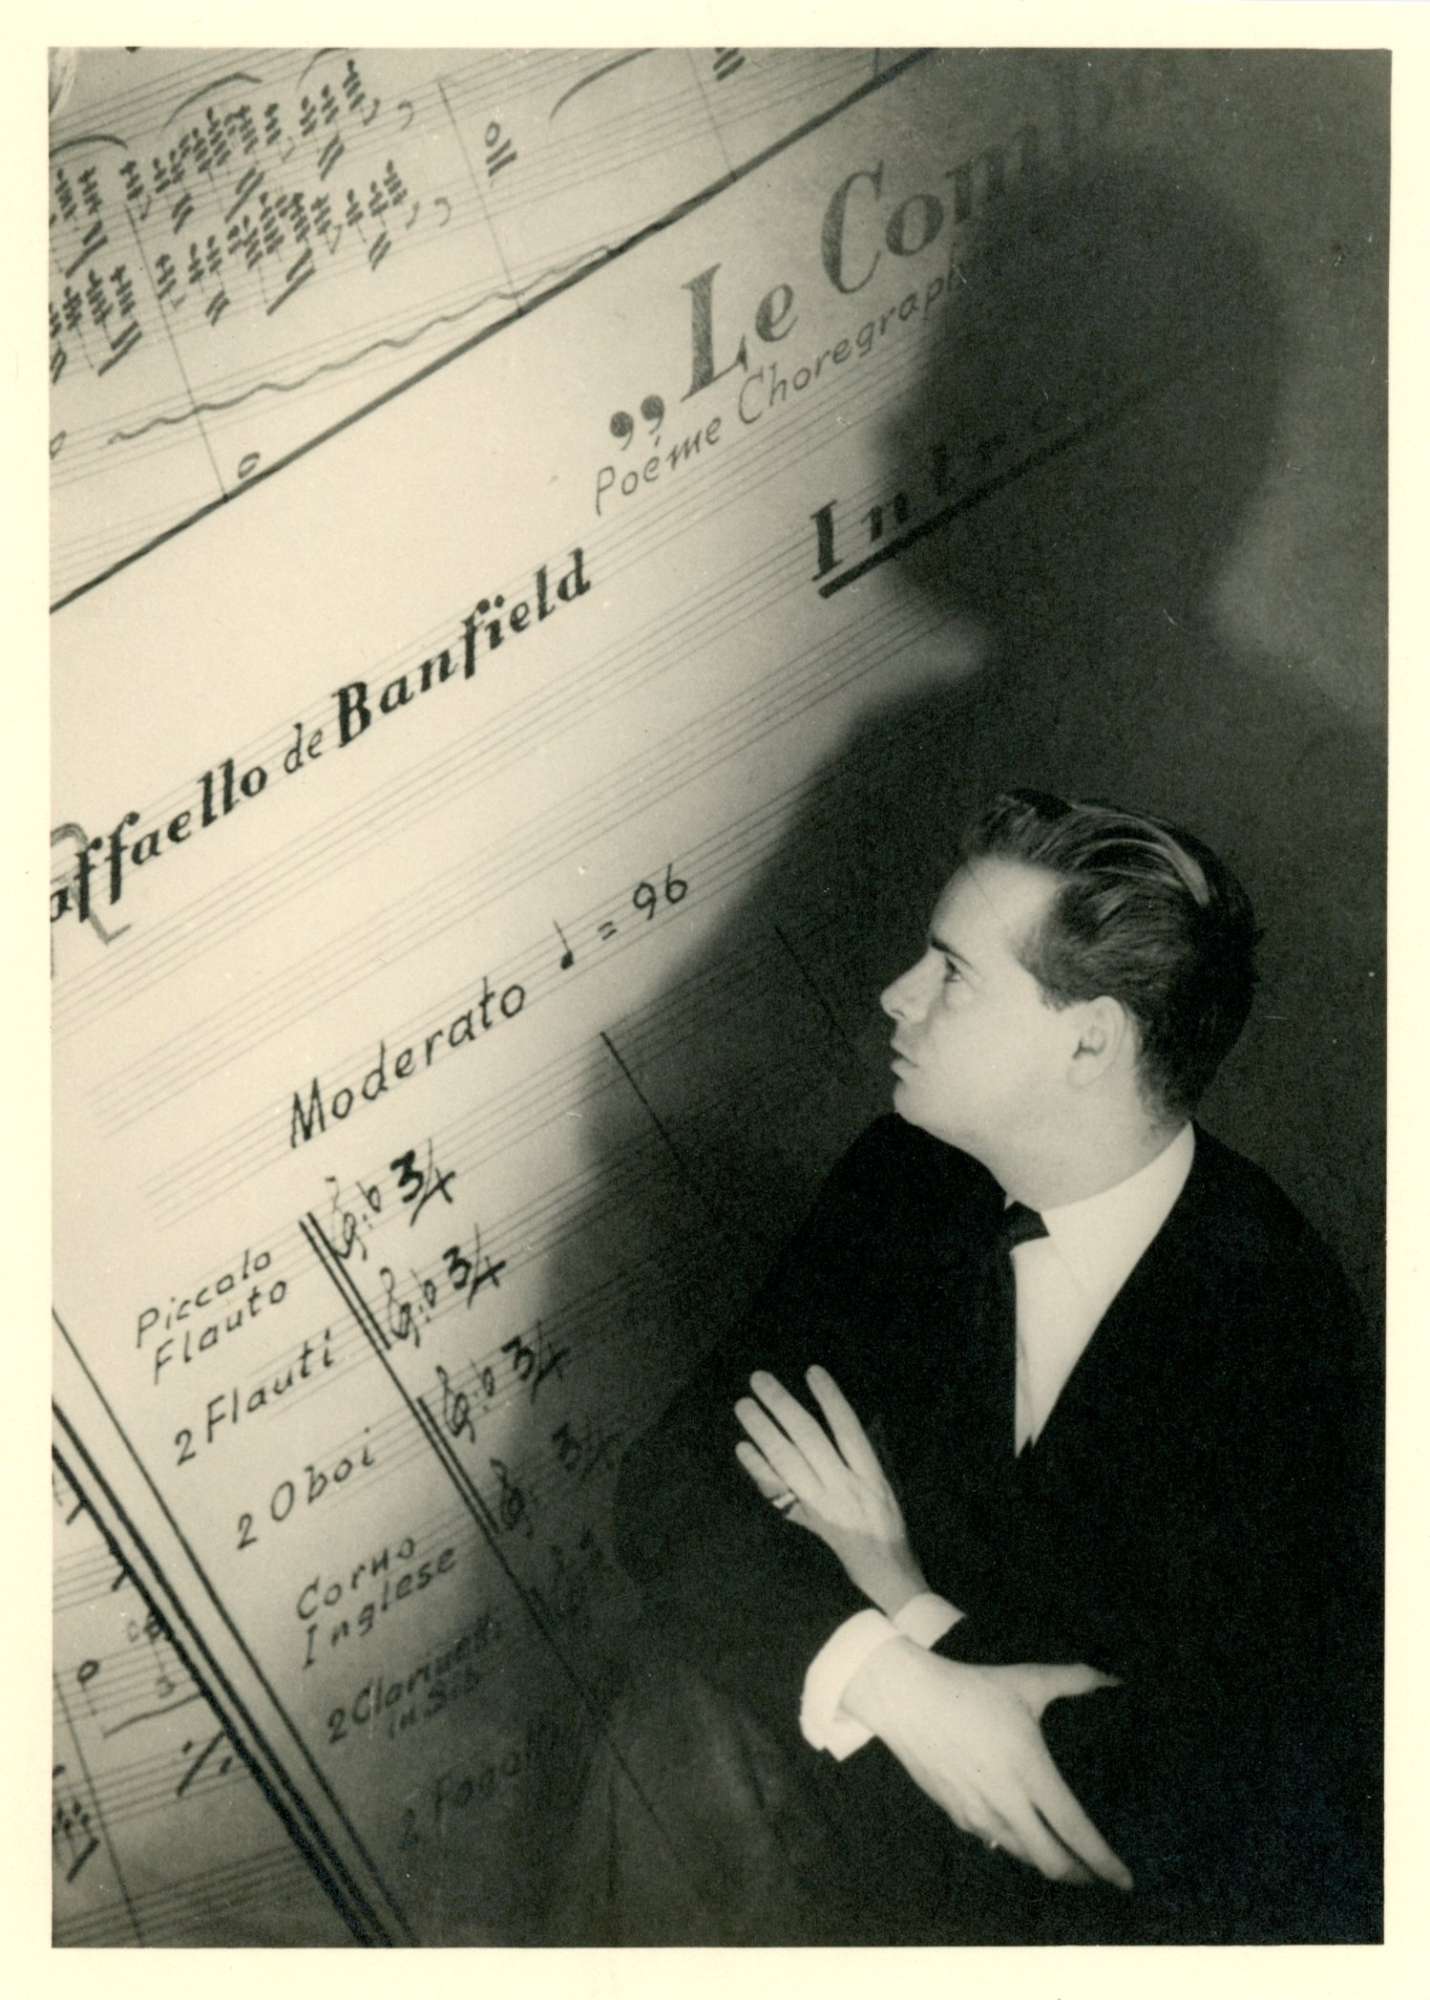 „Le Comba
Poéme Choregraph
Intr
affaello de Banfield
Moderato ♩ = 96
Piccolo
Flauto
3/4
2 Flauti
3/4
2 Oboi
3/4
Corno
Inglese
3/4
2 Clarinetti
in Si♭
2 Fagotti